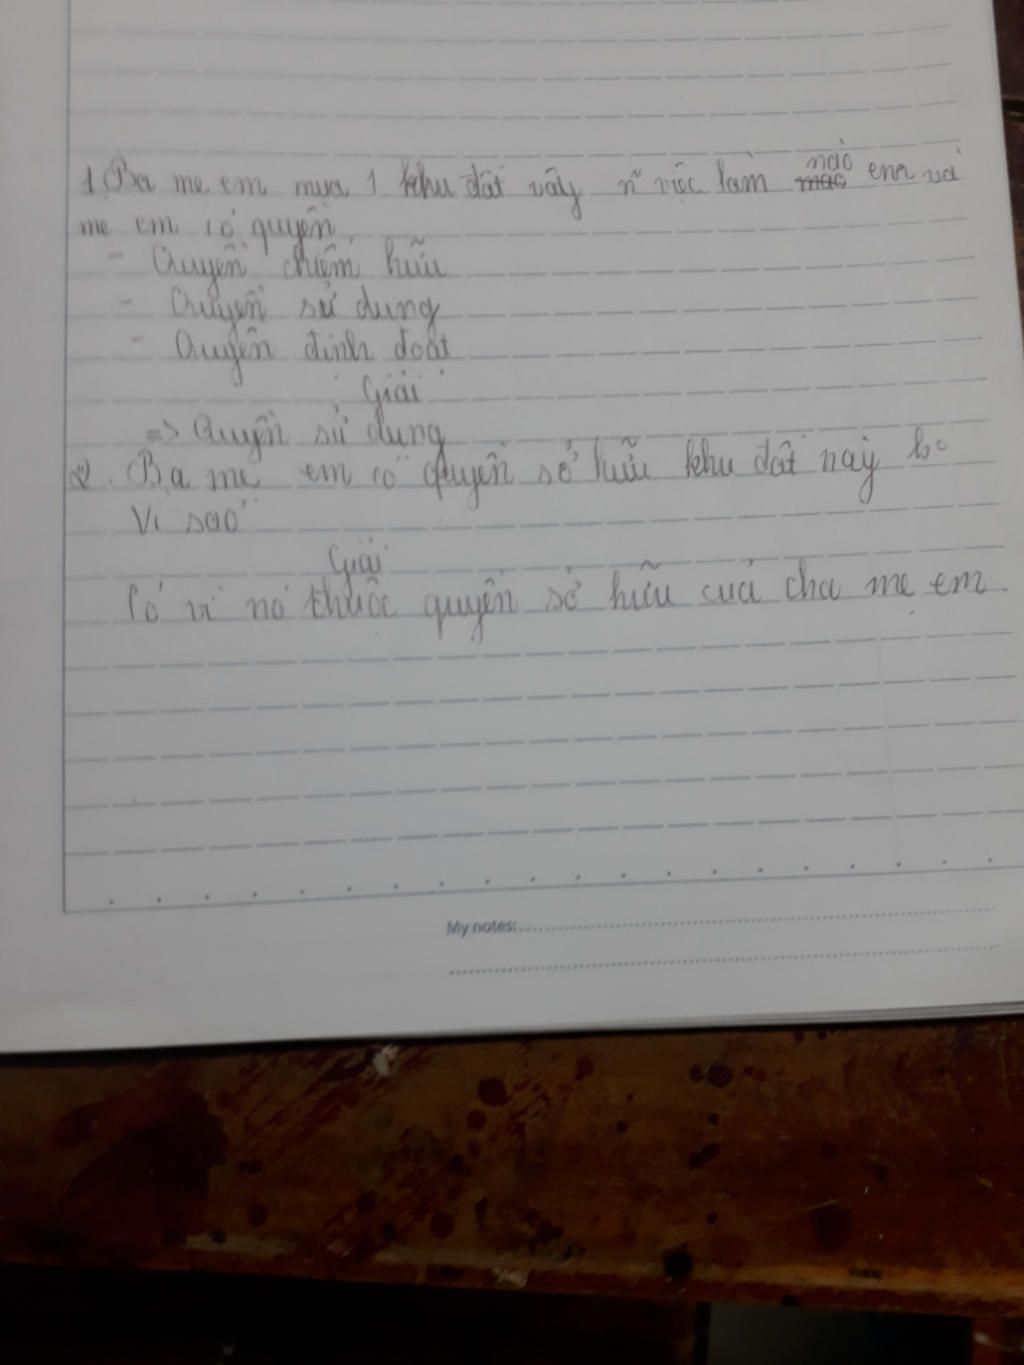 1. Ba mẹ em mua 1 khu đất vậy n~ việc làm nào em và
mẹ em có quyền
- Quyền chiếm hữu
- Quyền sử dụng
- Quyền định đoạt
Giải
=> Quyền sử dụng
2. Ba mẹ em có quyền sở hữu khu đất này ko
Vì sao
Giải
Có vì nó thuộc quyền sở hữu của cha mẹ em
My notes: